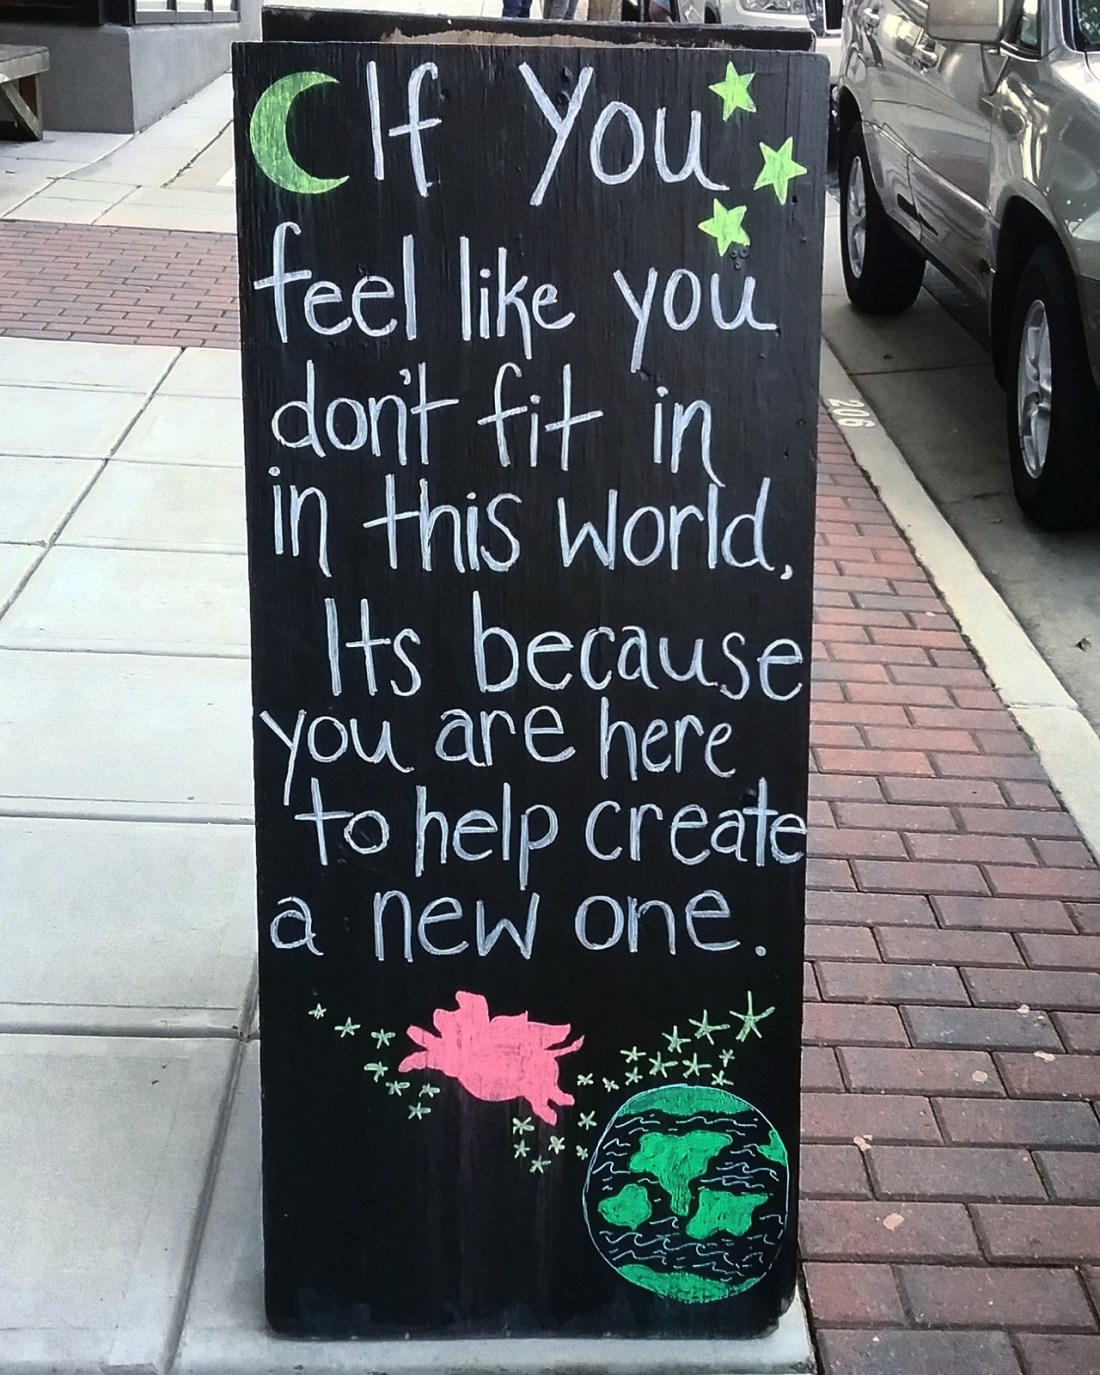 If You
feel like you
don't fit in
in this world,
Its because
you are here
to help create
a new one.
206